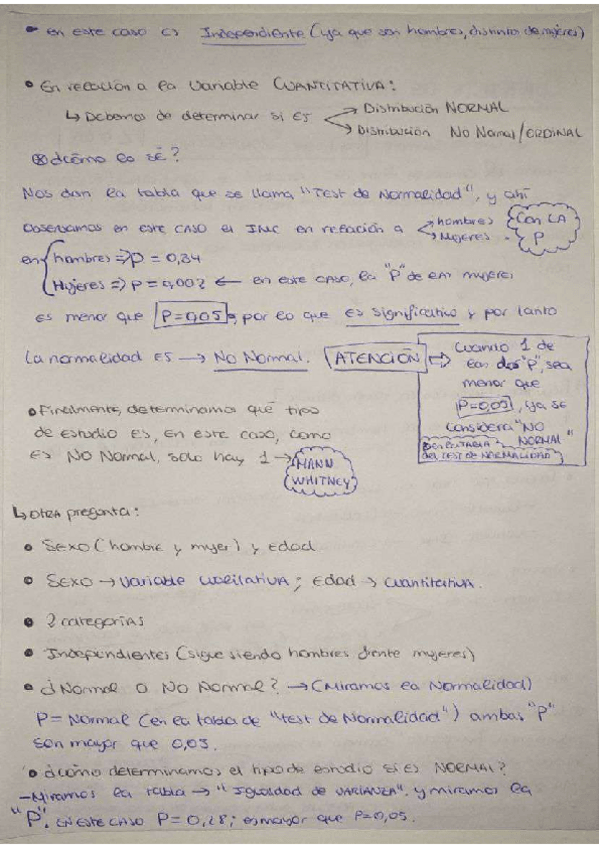 - en este caso es Independiente (ya que son hombres, distintos de mujeres)
• En relación a la variable CUANTITATIVA:
↳ Debemos de determinar si es
Distribución NORMAL
Distribución No Normal / ORDINAL
⊗ ¿cómo lo sé?
Nos dan la tabla que se llama "Test de Normalidad", y ahí
observamos en este caso el IMC en relación a
hombres
Mujeres
Con LA
P
en
hombres => p = 0,34
Mujeres => p = 0,002 ← en este caso, la "P" de las mujeres
es menor que P=0,05, por lo que es significativo y por tanto
la normalidad es → No Normal.
ATENCIÓN ⇨
Cuando 1 de
las dos "P", sea
menor que
P=0,05, ya se
considera "NO
NORMAL"
DEL TEST DE NORMALIDAD
• Finalmente, determinamos que tipo
de estudio es, en este caso, como
es No Normal, solo hay 1 →
MANN
WHITNEY
↳ Otra pregunta:
• Sexo (hombre y mujer) y Edad
• Sexo → Variable cualitativa; Edad → Cuantitativa.
• 2 categorías
• Independientes (sigue siendo hombres frente mujeres)
• ¿Normal o No Normal? → (Miramos la Normalidad)
P = Normal (en la tabla de "test de Normalidad") ambas "P"
son mayor que 0,05.
• ¿cómo determinamos el tipo de estudio si es NORMAL?
- Miramos la tabla → "Igualdad de VARIANZA". y miramos la
"P". EN ESTE CASO P = 0,28; es mayor que P=0,05.